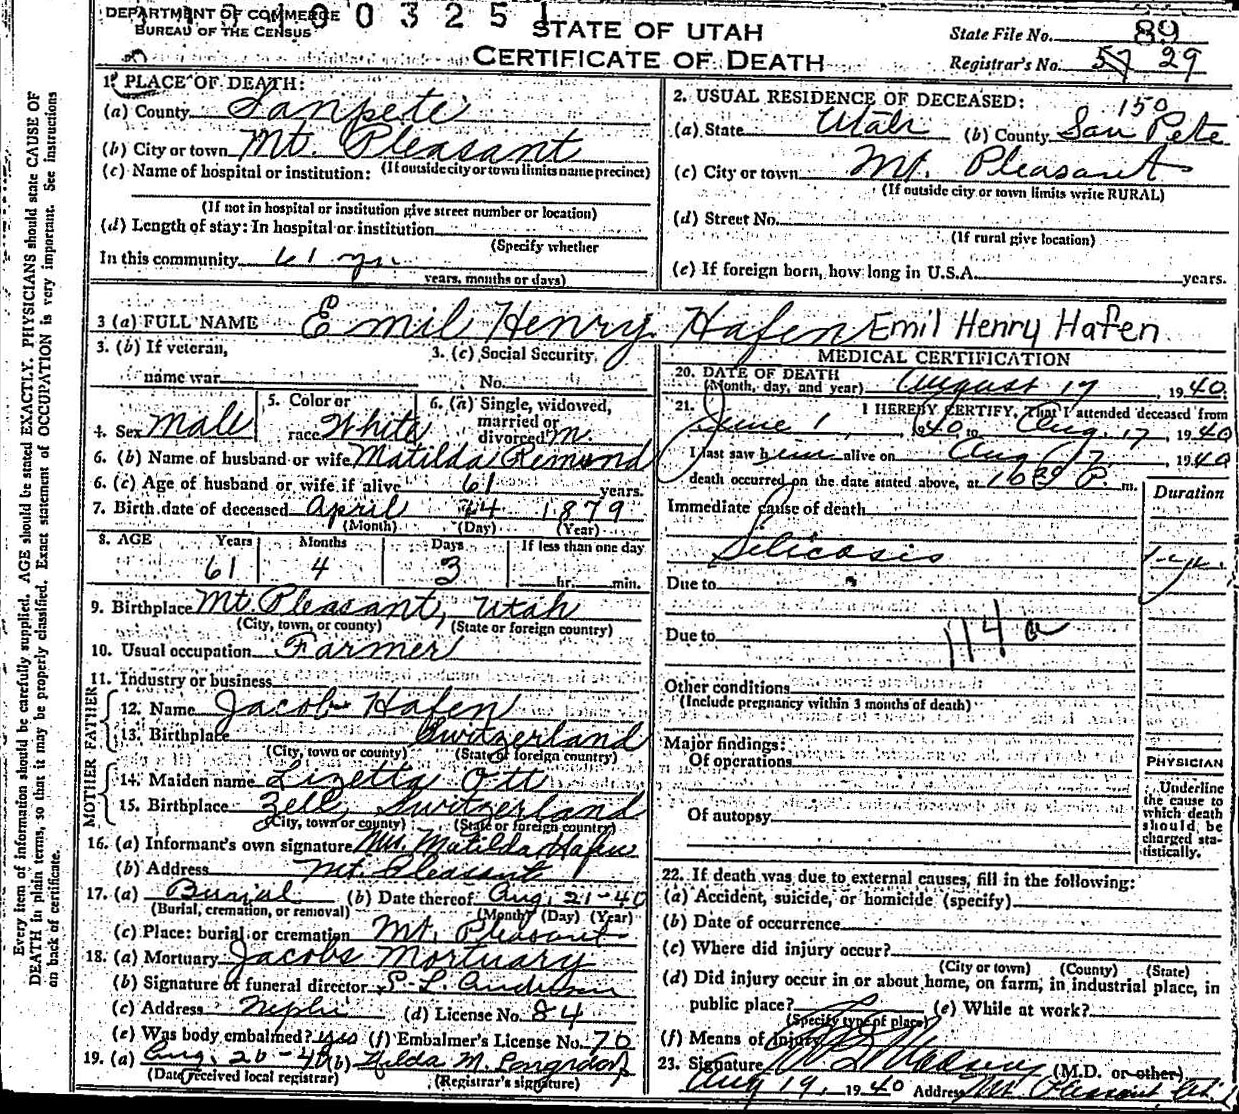 DEPARTMENT OF COMMERCE
BUREAU OF THE CENSUS
0 0 3 2 5 1
STATE OF UTAH
CERTIFICATE OF DEATH
State File No. 89
Registrar's No. 57 29
Every item of information should be carefully supplied. AGE should be stated EXACTLY. PHYSICIANS should state CAUSE OF
DEATH in plain terms, so that it may be properly classified. Exact statement of OCCUPATION is very important. See instructions
on back of certificate.
1. PLACE OF DEATH:
(a) County Sanpete
(b) City or town Mt. Pleasant
(c) Name of hospital or institution: (If outside city or town limits name precinct)
(If not in hospital or institution give street number or location)
(d) Length of stay: In hospital or institution
(Specify whether
In this community 61 yr.
years, months or days)
2. USUAL RESIDENCE OF DECEASED:
150
(a) State Utah (b) County San Pete
(c) City or town Mt. Pleasant
(If outside city or town limits write RURAL)
(d) Street No.
(If rural give location)
(e) If foreign born, how long in U.S.A. years.
3 (a) FULL NAME Emil Henry Hafen Emil Henry Hafen
3. (b) If veteran,
name war
3. (c) Social Security
No.
4. Sex Male
5. Color or
race White
6. (a) Single, widowed,
married or
divorced m.
6. (b) Name of husband or wife Matilda Remund
6. (c) Age of husband or wife if alive 61 years.
7. Birth date of deceased April 14 1879
(Month) (Day) (Year)
8. AGE Years Months Days If less than one day
61 4 3 hr. min.
9. Birthplace Mt. Pleasant, Utah
(City, town, or county) (State or foreign country)
10. Usual occupation Farmer
11. Industry or business
FATHER
12. Name Jacob Hafen
13. Birthplace Switzerland
(City, town or county) (State or foreign country)
MOTHER
14. Maiden name Lizetta Ott
15. Birthplace Zell, Switzerland
(City, town or county) (State or foreign country)
16. (a) Informant's own signature Mrs. Matilda Hafen
(b) Address Mt. Pleasant
17. (a) Burial (b) Date thereof Aug. 21-40
(Burial, cremation, or removal) (Month) (Day) (Year)
(c) Place: burial or cremation Mt. Pleasant
18. (a) Mortuary Jacobs Mortuary
(b) Signature of funeral director S. L. Anderson
(c) Address Nephi (d) License No. 84
(e) Was body embalmed? yes (f) Embalmer's License No. 70
19. (a) Aug. 20-40 (b) Hilda M. Longsdorf
(Date received local registrar) (Registrar's signature)
MEDICAL CERTIFICATION
20. DATE OF DEATH
(Month, day, and year) August 17, 1940
21. I HEREBY CERTIFY, That I attended deceased from
June 1, 1940 to Aug. 17, 1940
I last saw him alive on Aug 17, 1940
death occurred on the date stated above, at P. m.
Duration
Immediate cause of death
Silicosis
Due to
Due to
114 a
Other conditions
(Include pregnancy within 3 months of death)
Major findings:
Of operations
Of autopsy
PHYSICIAN
Underline
the cause to
which death
should be
charged sta-
tistically.
22. If death was due to external causes, fill in the following:
(a) Accident, suicide, or homicide (specify)
(b) Date of occurrence
(c) Where did injury occur?
(City or town) (County) (State)
(d) Did injury occur in or about home, on farm, in industrial place, in
public place? (e) While at work?
(Specify type of place)
(f) Means of injury
23. Signature (M.D. or other)
Aug 19, 1940 Address Mt Pleasant Ut.